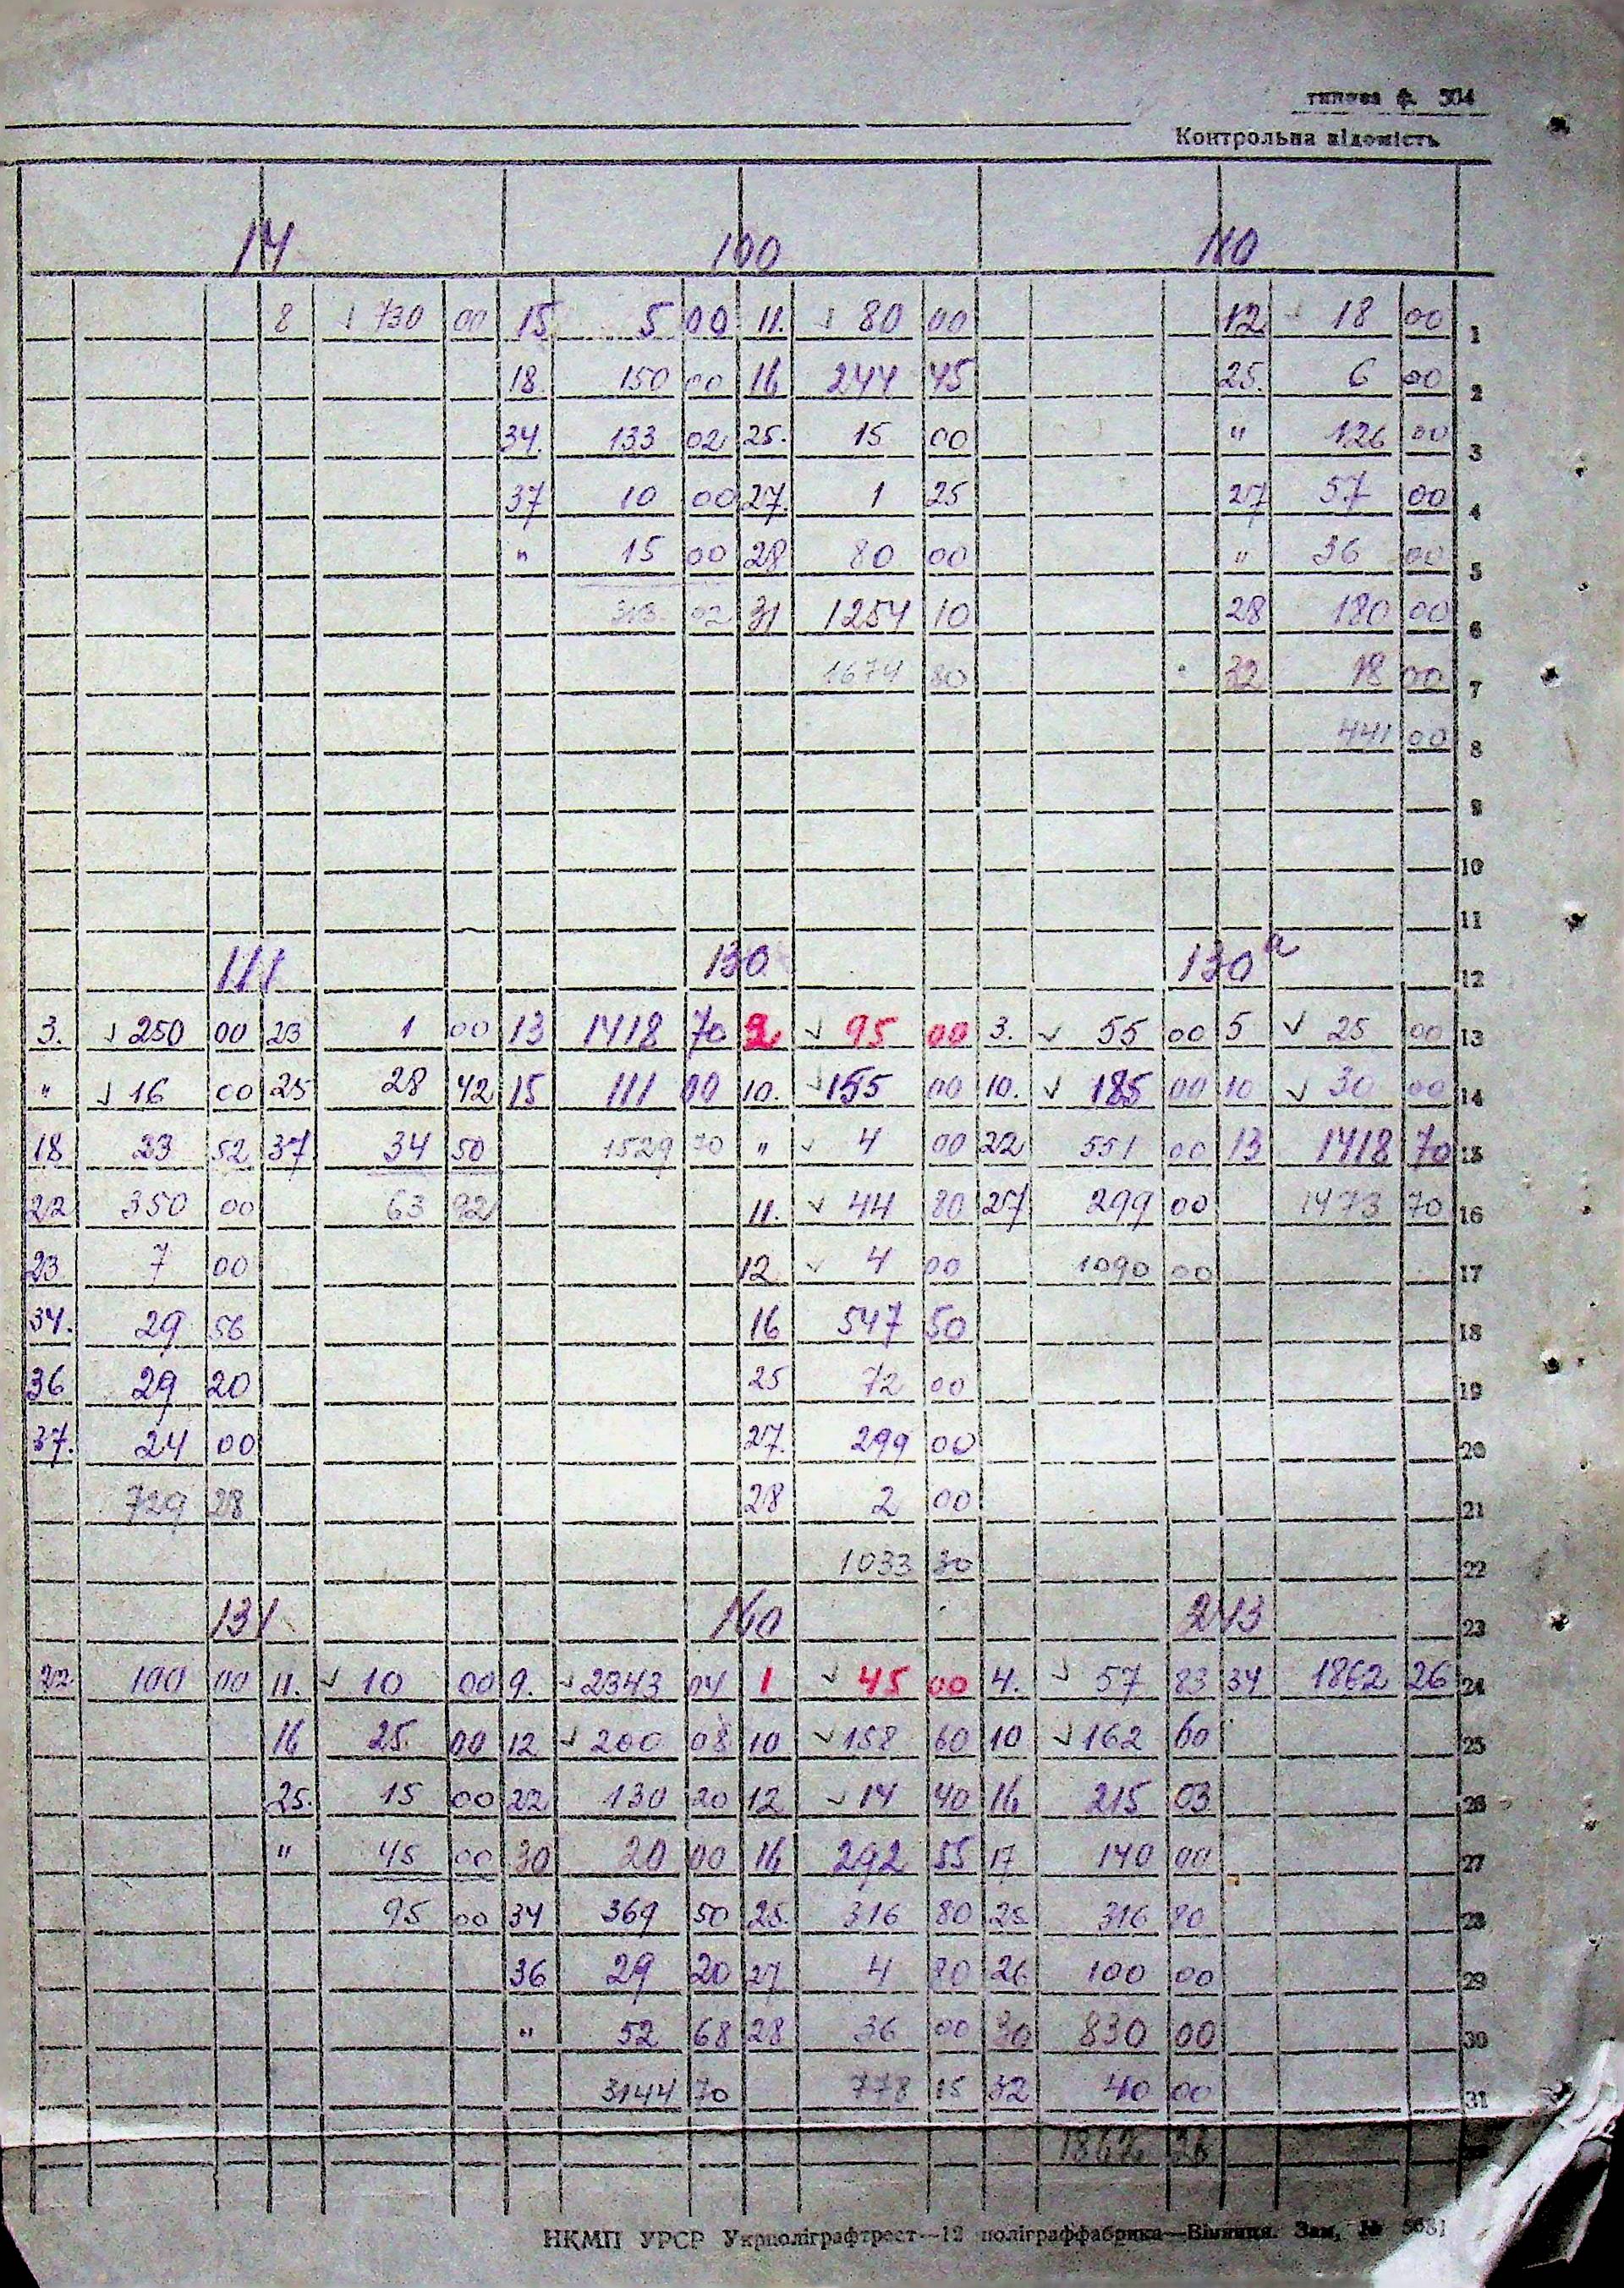 типова ф. 504
Контрольна відомість
14 100 110
8 730 00 15 5 00 11. 80 00 12 18 00 1
18. 150 00 16 244 45 25. 6 00 2
34. 133 02 25. 15 00 " 126 00 3
37 10 00 27. 1 25 27 57 00 4
" 15 00 28 80 00 " 36 00 5
313 02 31 1254 10 28 180 00 6
1674 80 32 18 00 7
441 00 8
9
10
11
111 130 130а 12
3. 250 00 23 1 00 13 1418 70 2 95 00 3. 55 00 5 25 00 13
" 16 00 25 28 42 15 111 00 10. 155 00 10. 185 00 10 30 00 14
18 23 52 37 34 50 1529 70 " 4 00 22 551 00 13 1418 70 15
22 350 00 63 92 11. 44 80 27 299 00 1473 70 16
23 7 00 12 4 00 1090 00 17
34. 29 56 16 547 50 18
36 29 20 25 72 00 19
37. 24 00 27. 299 00 20
729 28 28 2 00 21
1033 30 22
131 140 243 23
22 100 00 11. 10 00 9. 2343 04 1 45 00 4. 57 83 34 1862 26 24
16 25 00 12 200 08 10 158 60 10 162 60 25
25. 15 00 22 130 20 12 14 40 16 215 03 26
" 45 00 30 20 00 16 292 55 17 140 00 27
95 00 34 369 50 25. 316 80 25 316 80 28
36 29 20 27 4 80 26 100 00 29
" 52 68 28 36 00 30 830 00 30
3144 70 778 15 32 40 00 31
1862 26
НКМП УРСР Укрполіграфтрест—12 поліграффабрика—Вінниця. Зам. № 5631